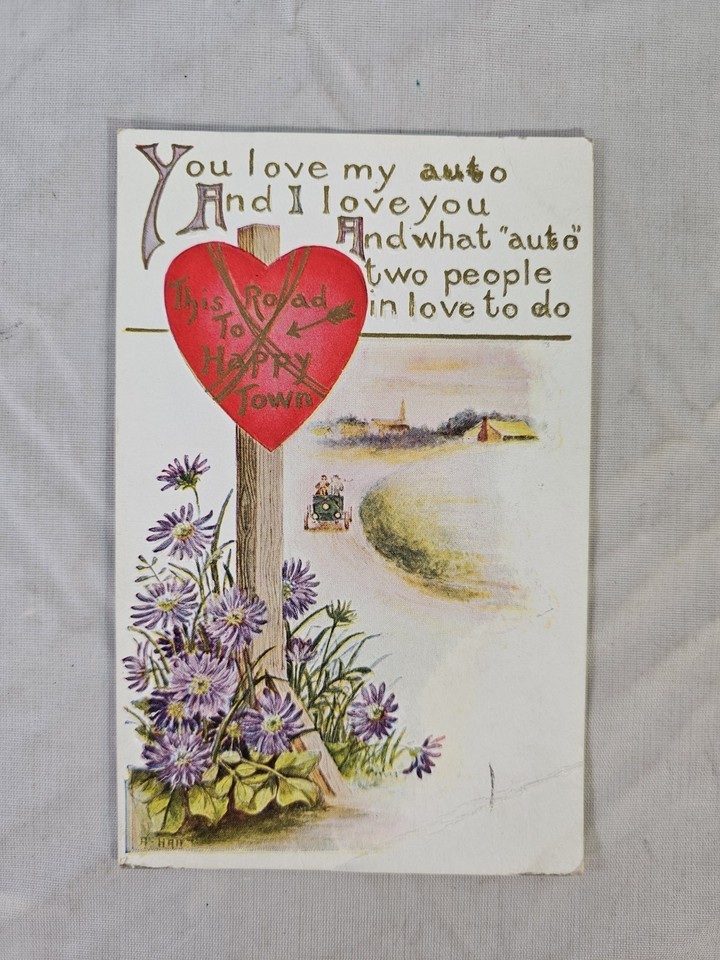 You love my auto
And I love you
And what "auto"
two people
in love to do
This Road
To
Happy
Town